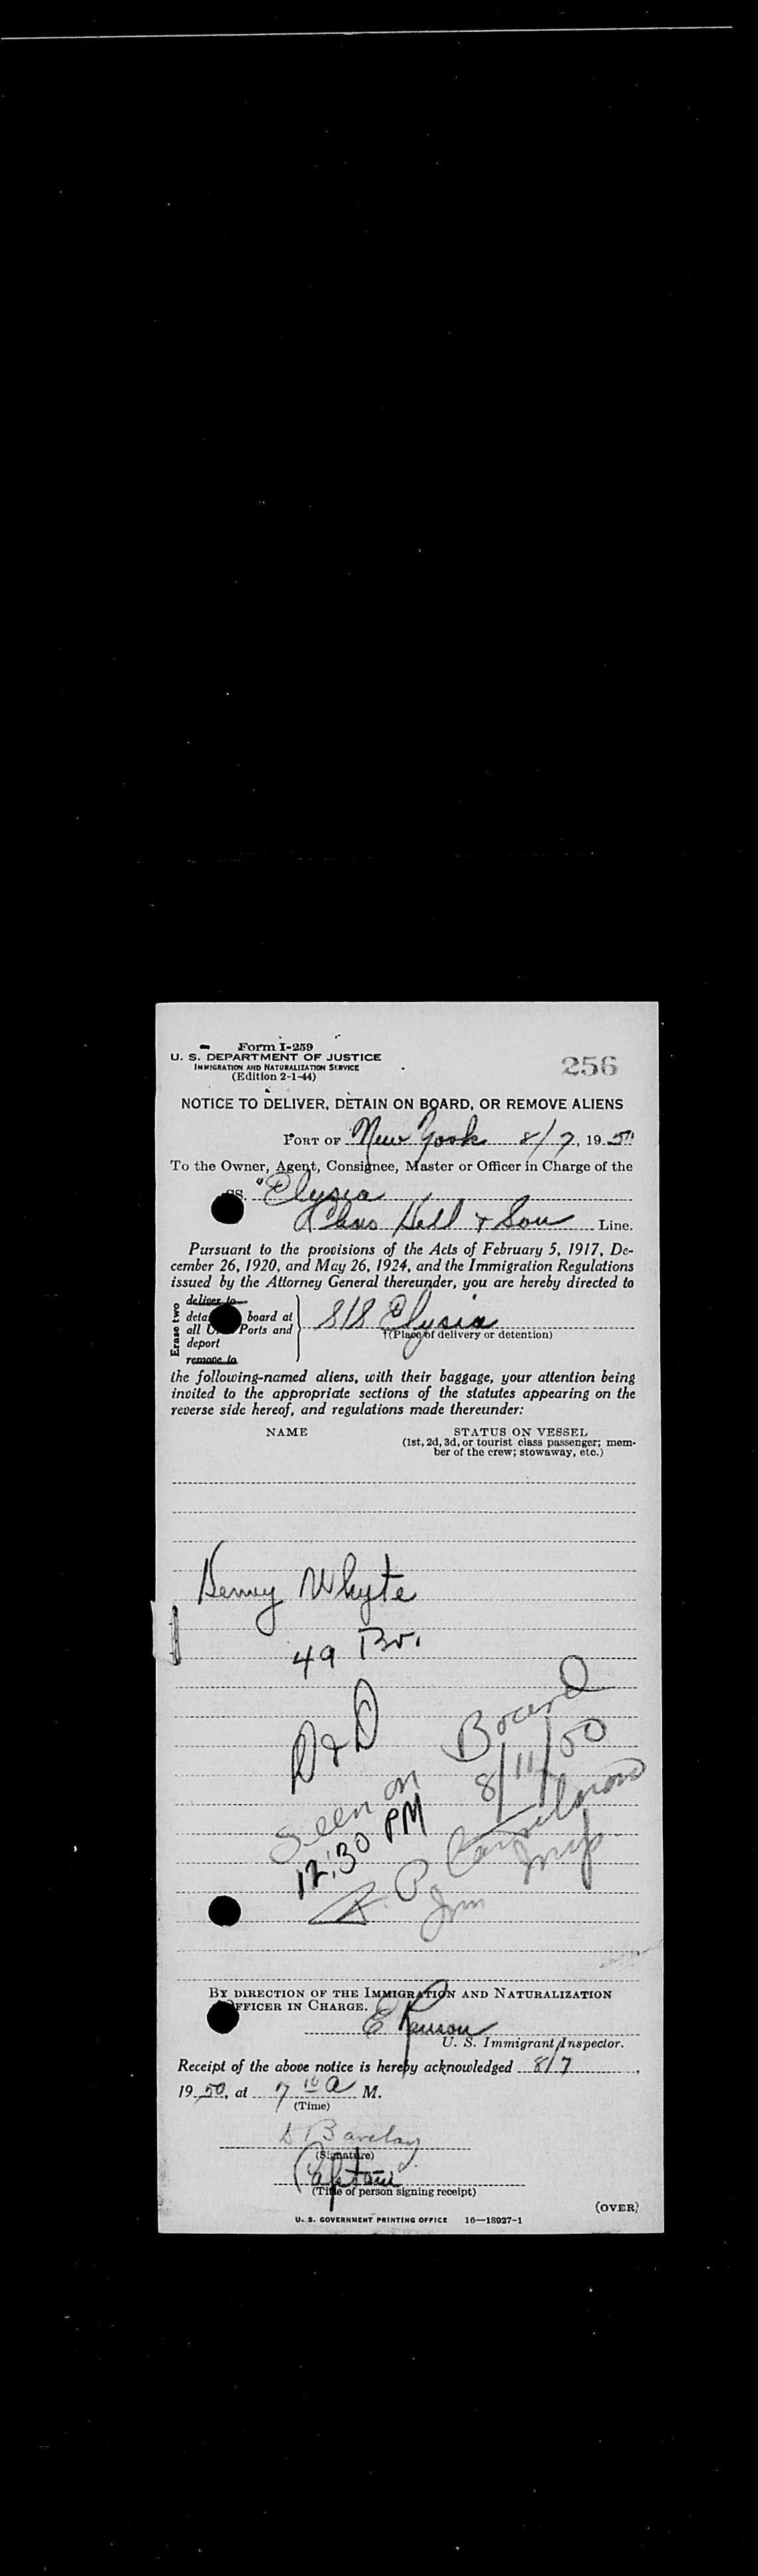 Form I-259
U. S. DEPARTMENT OF JUSTICE
IMMIGRATION AND NATURALIZATION SERVICE
(Edition 2-1-44)
256
NOTICE TO DELIVER, DETAIN ON BOARD, OR REMOVE ALIENS
PORT OF New York 8/7, 1950
To the Owner, Agent, Consignee, Master or Officer in Charge of the
SS. "Elysia
Chas Hill & Son Line.
Pursuant to the provisions of the Acts of February 5, 1917, De-
cember 26, 1920, and May 26, 1924, and the Immigration Regulations
issued by the Attorney General thereunder, you are hereby directed to
Erase two
deliver to
deta board at
all U. Ports and
deport
remove to
S/S Elysia
(Place of delivery or detention)
the following-named aliens, with their baggage, your attention being
invited to the appropriate sections of the statutes appearing on the
reverse side hereof, and regulations made thereunder:
NAME
STATUS ON VESSEL
(1st, 2d, 3d, or tourist class passenger; mem-
ber of the crew; stowaway, etc.)
Henry Whyte
49 Br.
D & D
Seen on Board
12:30 PM 8/11/50
BY DIRECTION OF THE IMMIGRATION AND NATURALIZATION
OFFICER IN CHARGE.
U. S. Immigrant Inspector.
Receipt of the above notice is hereby acknowledged 8/7,
1950, at 7 10 A M.
(Time)
D Barclay
(Signature)
Captain
(Title of person signing receipt)
(OVER)
U. S. GOVERNMENT PRINTING OFFICE 16—18927-1